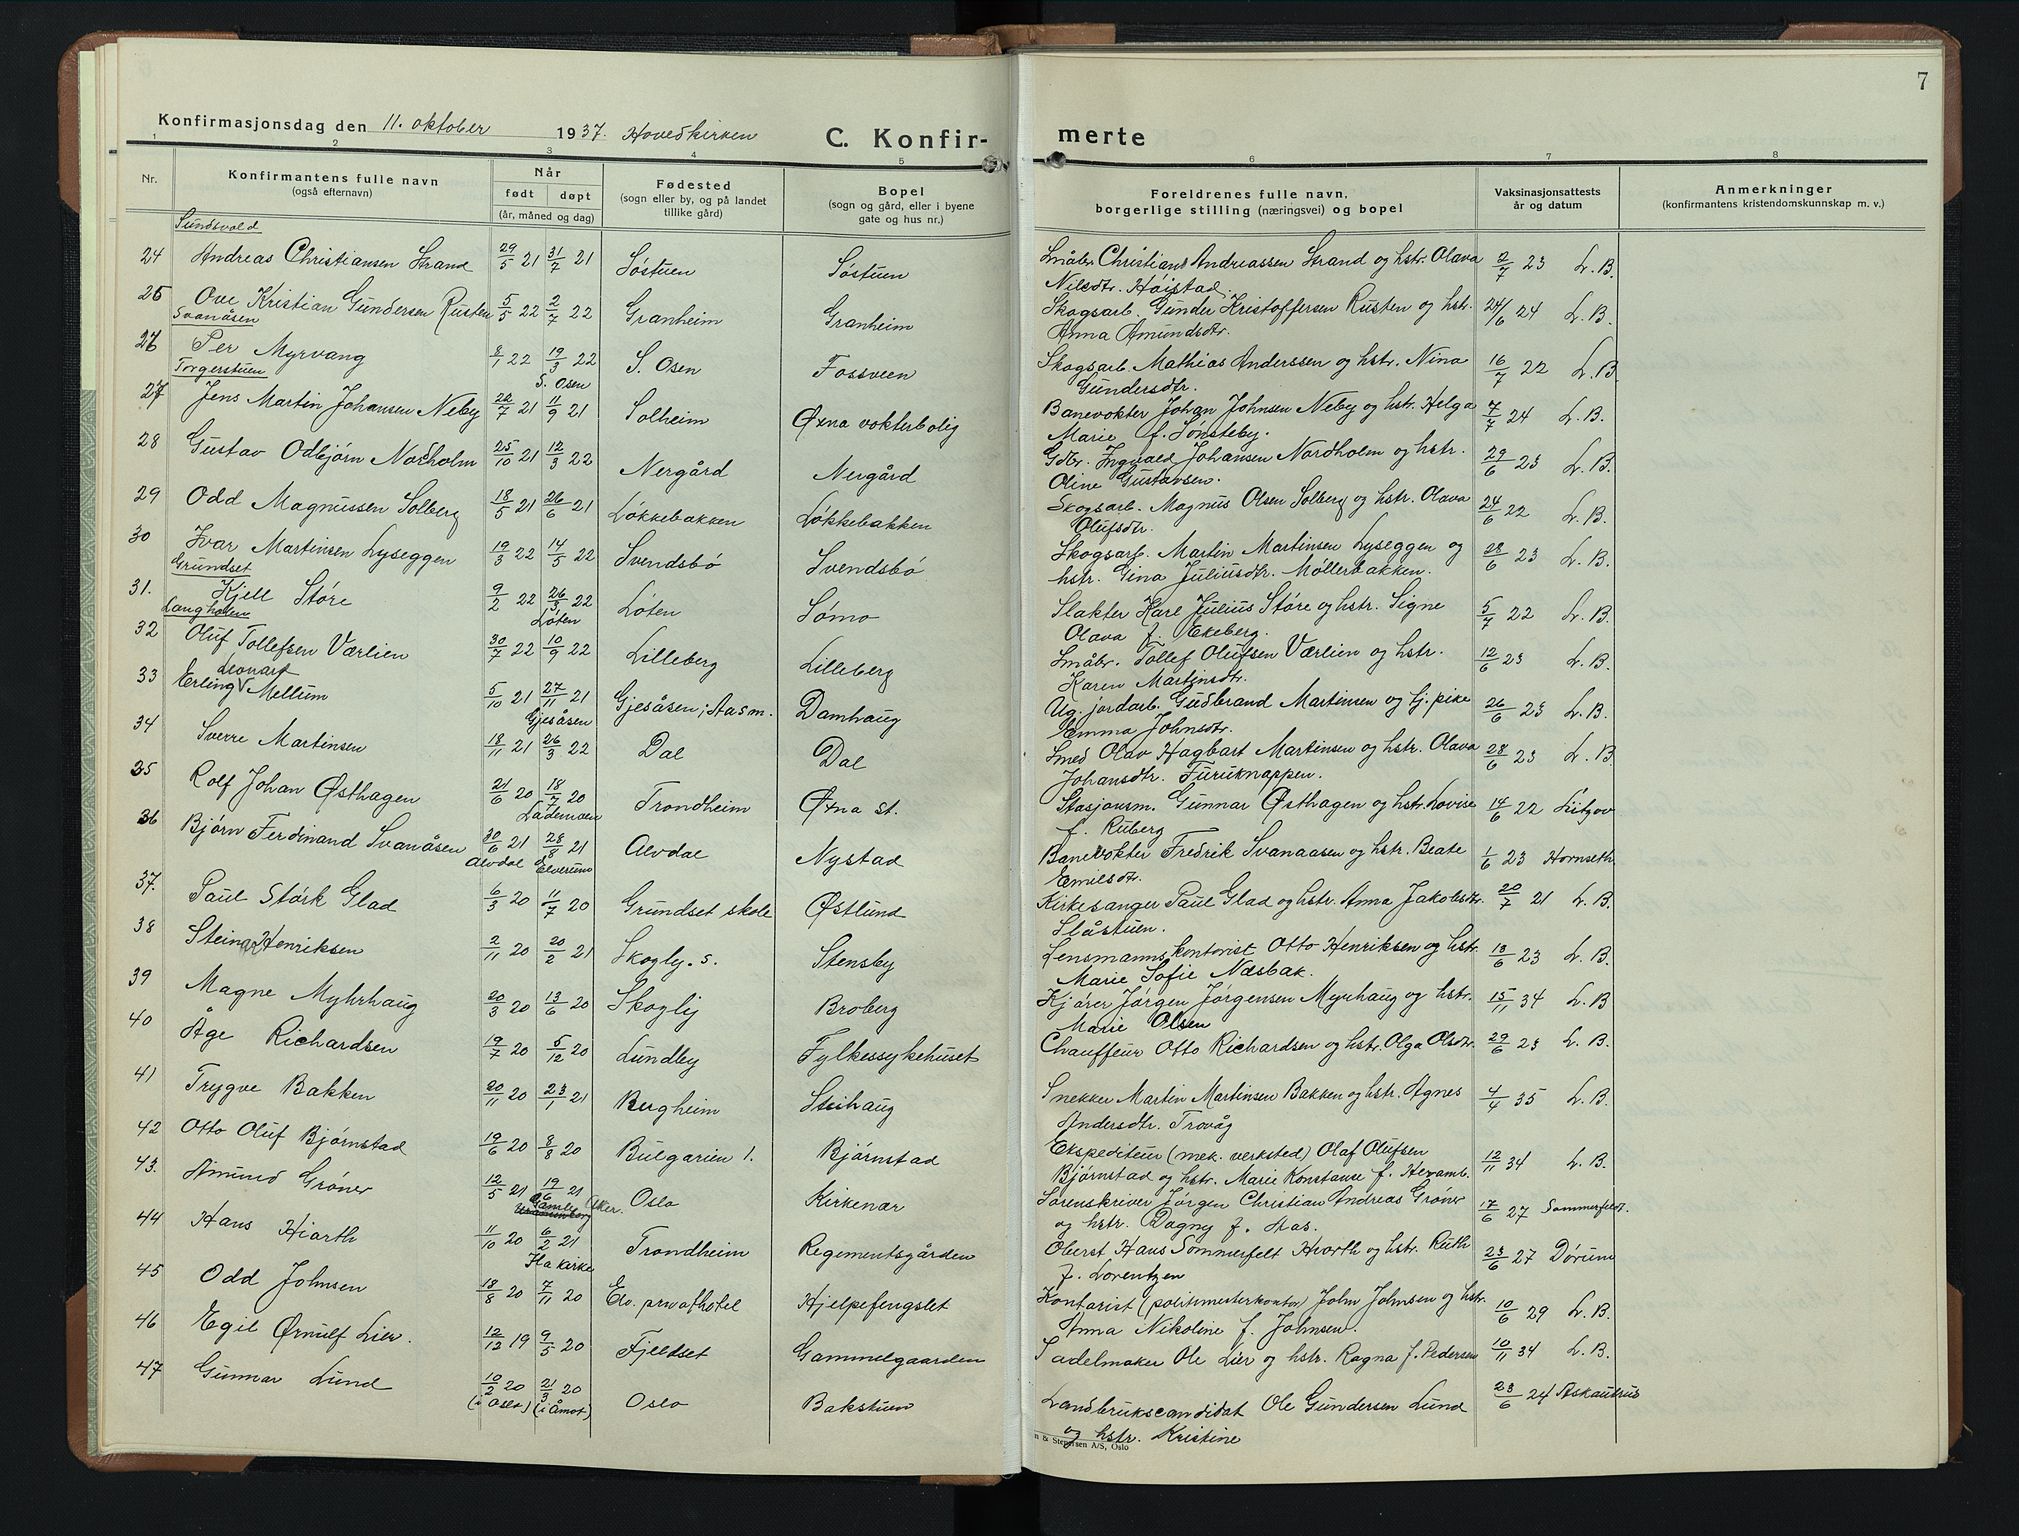 7
Konfirmasjonsdag den 11. oktober 1937. Hovedkirken
C. Konfir-
merte
1 2 3 4 5 6 7 8
Nr. Konfirmantens fulle navn (også efternavn) Når født døpt (år, måned og dag) Fødested (sogn eller by, og på landet tillike gård) Bopel (sogn og gård, eller i byene gate og hus nr.) Foreldrenes fulle navn, borgerlige stilling (næringsvei) og bopel Vaksinasjonsattests år og datum Anmerkninger (konfirmantens kristendomskunnskap m. v.)
Sundsvold
24 Andreas Christiansen Strand 29/5 21 31/7 21 Søstuen Søstuen Småbr. Christians Andreassen Strand og hstr. Olava 2/7 23 L. B.
Nilsdtr. Høistad.
25 Ove Kristian Gundersen Rusten 5/5 22 2/7 22 Granheim Granheim Skogsarb. Gunder Kristoffersen Rusten og hstr. 24/6 24 L. B.
Svanåsen Anna Amundsdtr.
26 Per Myrvang 8/1 22 19/3 22 S. Osen Fossveen Skogsarb. Mathias Anderssen og hstr. Nina 16/7 22 L. B.
Torgerstuen S. Osen Gundersdtr.
27 Jens Martin Johansen Neby 22/7 21 11/9 21 Solheim Øxna vokterbolig Banevokter Johan Johnsen Neby og hstr. Helga 7/7 24 L. B.
Marie f. Sønsteby.
28 Gustav Odbjørn Nordholm 25/10 21 12/3 22 Nergård Nergård Gdbr. Ingvald Johansen Nordholm og hstr. 29/6 23 L. B.
Oline Gustavsen.
29 Odd Magnussen Solberg 18/5 21 26/6 21 Løkkebakken Løkkebakken Skogsarb. Magnus Olsen Solberg og hstr. Olava 24/6 22 L. B.
Olufsdtr.
30 Ivar Martinsen Lyseggen 19/3 22 14/5 22 Svendsbø Svendsbø Skogsarb. Martin Martinsen Lyseggen og 28/6 23 L. B.
Grundset hstr. Gina Juliusdtr. Møllerbakken.
31. Kjell Støre 9/2 22 26/3 22 Løten Sømo Slakter Karl Julius Støre og hstr. Signe 5/7 22 L. B.
Langholen Løten Olava f. Ekeberg.
32 Oluf Tollefsen Værlien 30/7 22 10/9 22 Lilleberg Lilleberg Småbr. Tollef Olufsen Værlien og hstr. 12/6 23 L. B.
Leonart Karen Martinsdtr.
33 Erling Mellum 5/10 21 27/11 21 Gjesåsen i Aasm. Damhaug Ug. jordarb. Gudbrand Martinsen og Gj. pike 26/6 23 L. B.
Gjesåsen Emma Johnsdtr.
34 Sverre Martinsen 18/11 21 26/3 22 Dal Dal Smed Olav Hagbart Martinsen og hstr. Olava 28/6 23 L. B.
Johansdtr. Furuknappen.
35 Rolf Johan Østhagen 21/6 20 18/7 20 Trondheim Øxna st. Stasjonsm. Gunnar Østhagen og hstr. Lovise 14/6 22 Lützov
Lademoen f. Ruberg
36 Bjørn Ferdinand Svanåsen 30/6 21 28/8 21 Alvdal Nystad Banevokter Fredrik Svanaasen og hstr. Beate 1/6 23 Hornseth
Alvdal Elverum Emilsdtr.
37. Paul Størk Glad 6/3 20 11/7 20 Grundset skole Østlund Kirkesanger Paul Glad og hstr. Anna Jakobsdtr. 20/7 21 L. B.
Slåstuen.
38 Steinar Henriksen 2/11 20 20/2 21 Skogly. s. Stensby Lensmannskontorist Otto Henriksen og hstr. 13/6 23 L. B.
Marie Sofie Næsbak.
39 Magne Myhrhaug 20/3 20 13/6 20 Skoglij Broberg Kjører Jørgen Jørgensen Myrhaug og hstr. 15/11 34 L. B
Marie Olsen
40 Åge Richardsen 19/7 20 5/12 20 Lundby Fylkessykehuset Chauffeur Otto Richardsen og hstr. Olga Olsdtr. 29/6 23 L. B.
41 Trygve Bakken 20/11 20 23/1 21 Bergheim Steihaug Snekker Martin Martinsen Bakken og hstr. Agnes 4/4 35 L. B.
Andersdtr. Trovåg
42 Otto Oluf Bjørnstad 19/6 20 8/8 20 Bulgarien 1. Bjørnstad Ekspediteur (mek. verksted) Olaf Olufsen 12/11 34 L. B.
Bjørnstad og hstr. Marie Konstanse f. Hexamb.
43. Amund Grøner 12/5 21 19/6 21 Oslo Kirkenær Sorenskriver Jørgen Christian Andreas Grøner 17/6 27 Sommerfeldt.
Gamle Aker. Uranienborg og hstr. Dagny f. Aas.
44 Hans Hiorth 11/10 20 6/2 21 Trondheim Regementsgården Oberst Hans Sommerfelt Hiorth og hstr. Ruth 23/6 27 Dørum
Ila kirke f. Lorentzen
45 Odd Johnsen 18/8 20 7/11 20 Elv. privathotel Hjelpefengslet Kontorist (politimesterkontor) John Johnsen og hstr. 10/6 29 L. B.
Anna Nikoline f. Johnsen.
46 Egil Ørnulf Lier. 12/12 19 9/5 20 Fjeldset Gammelgaarden Sadelmaker Ole Lier og hstr. Ragna f. Pedersen 10/11 34 L. B.
47 Gunnar Lund 10/2 20 21/3 20 Oslo Bakstuen Landbrukscandidat Ole Gundersen Lund 23/6 24 Askautrus
(i Oslo) (i Åmot) og hstr. Kristine
n & Stenersen A/S, Oslo